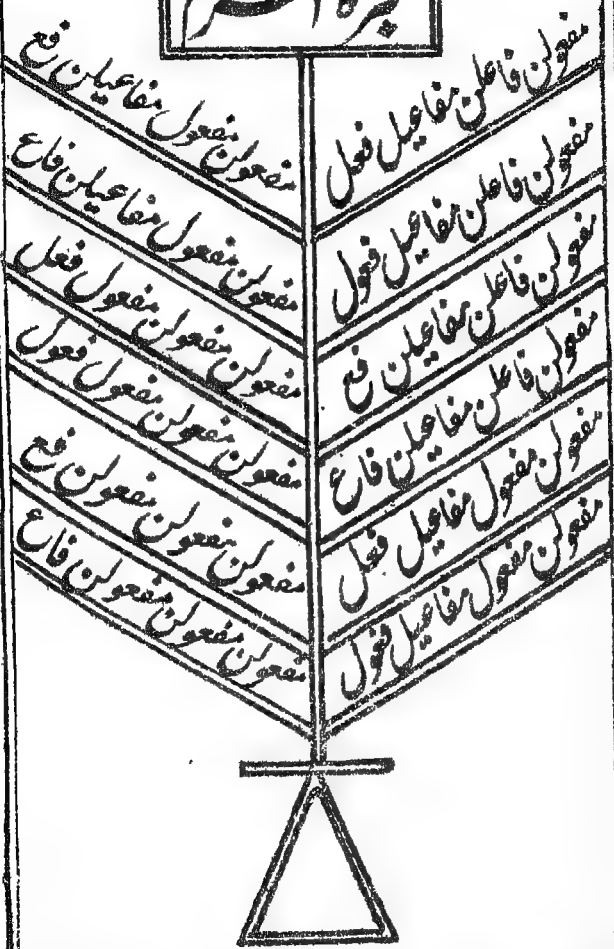 مفعولن فاعلن مفاعیل فعل
مفعولن فاعلن مفاعیل فعول
مفعولن فاعلن مفاعیلن فع
مفعولن فاعلن مفاعیلن فاع
مفعولن مفعول مفاعیل فعل
مفعولن مفعول مفاعیل فعول
مفعولن مفعول مفاعیلن فع
مفعولن مفعول مفاعیلن فاع
مفعولن مفعولن مفعول فعل
مفعولن مفعولن مفعول فعول
مفعولن مفعولن مفعولن فع
مفعولن مفعولن مفعولن فاع